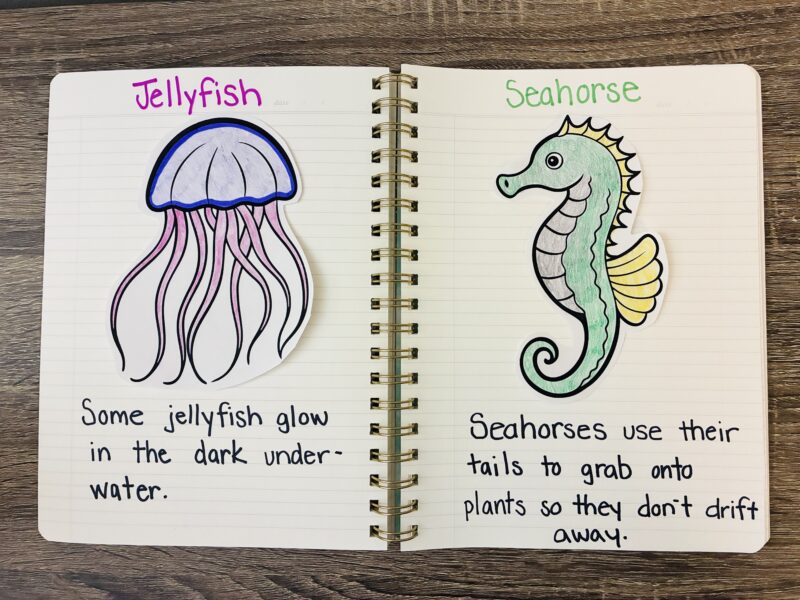 Jellyfish
date
Some jellyfish glow
in the dark under-
water.
Seahorse
Seahorses use their
tails to grab onto
plants so they don't drift
away.